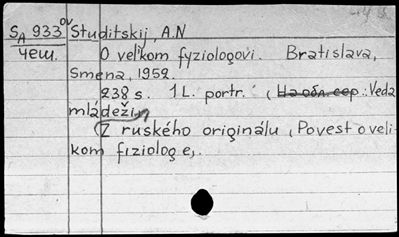 SA 933 ov Studitskij, A.N
чеш. O vel'kom fyziologovi. Bratislava,
Smena, 1952.
238 s. 1 L. portr. (На обл. сер.: Veda
mládeži)
Z ruského originálu (Povest o veli-
kom fiziologe,.